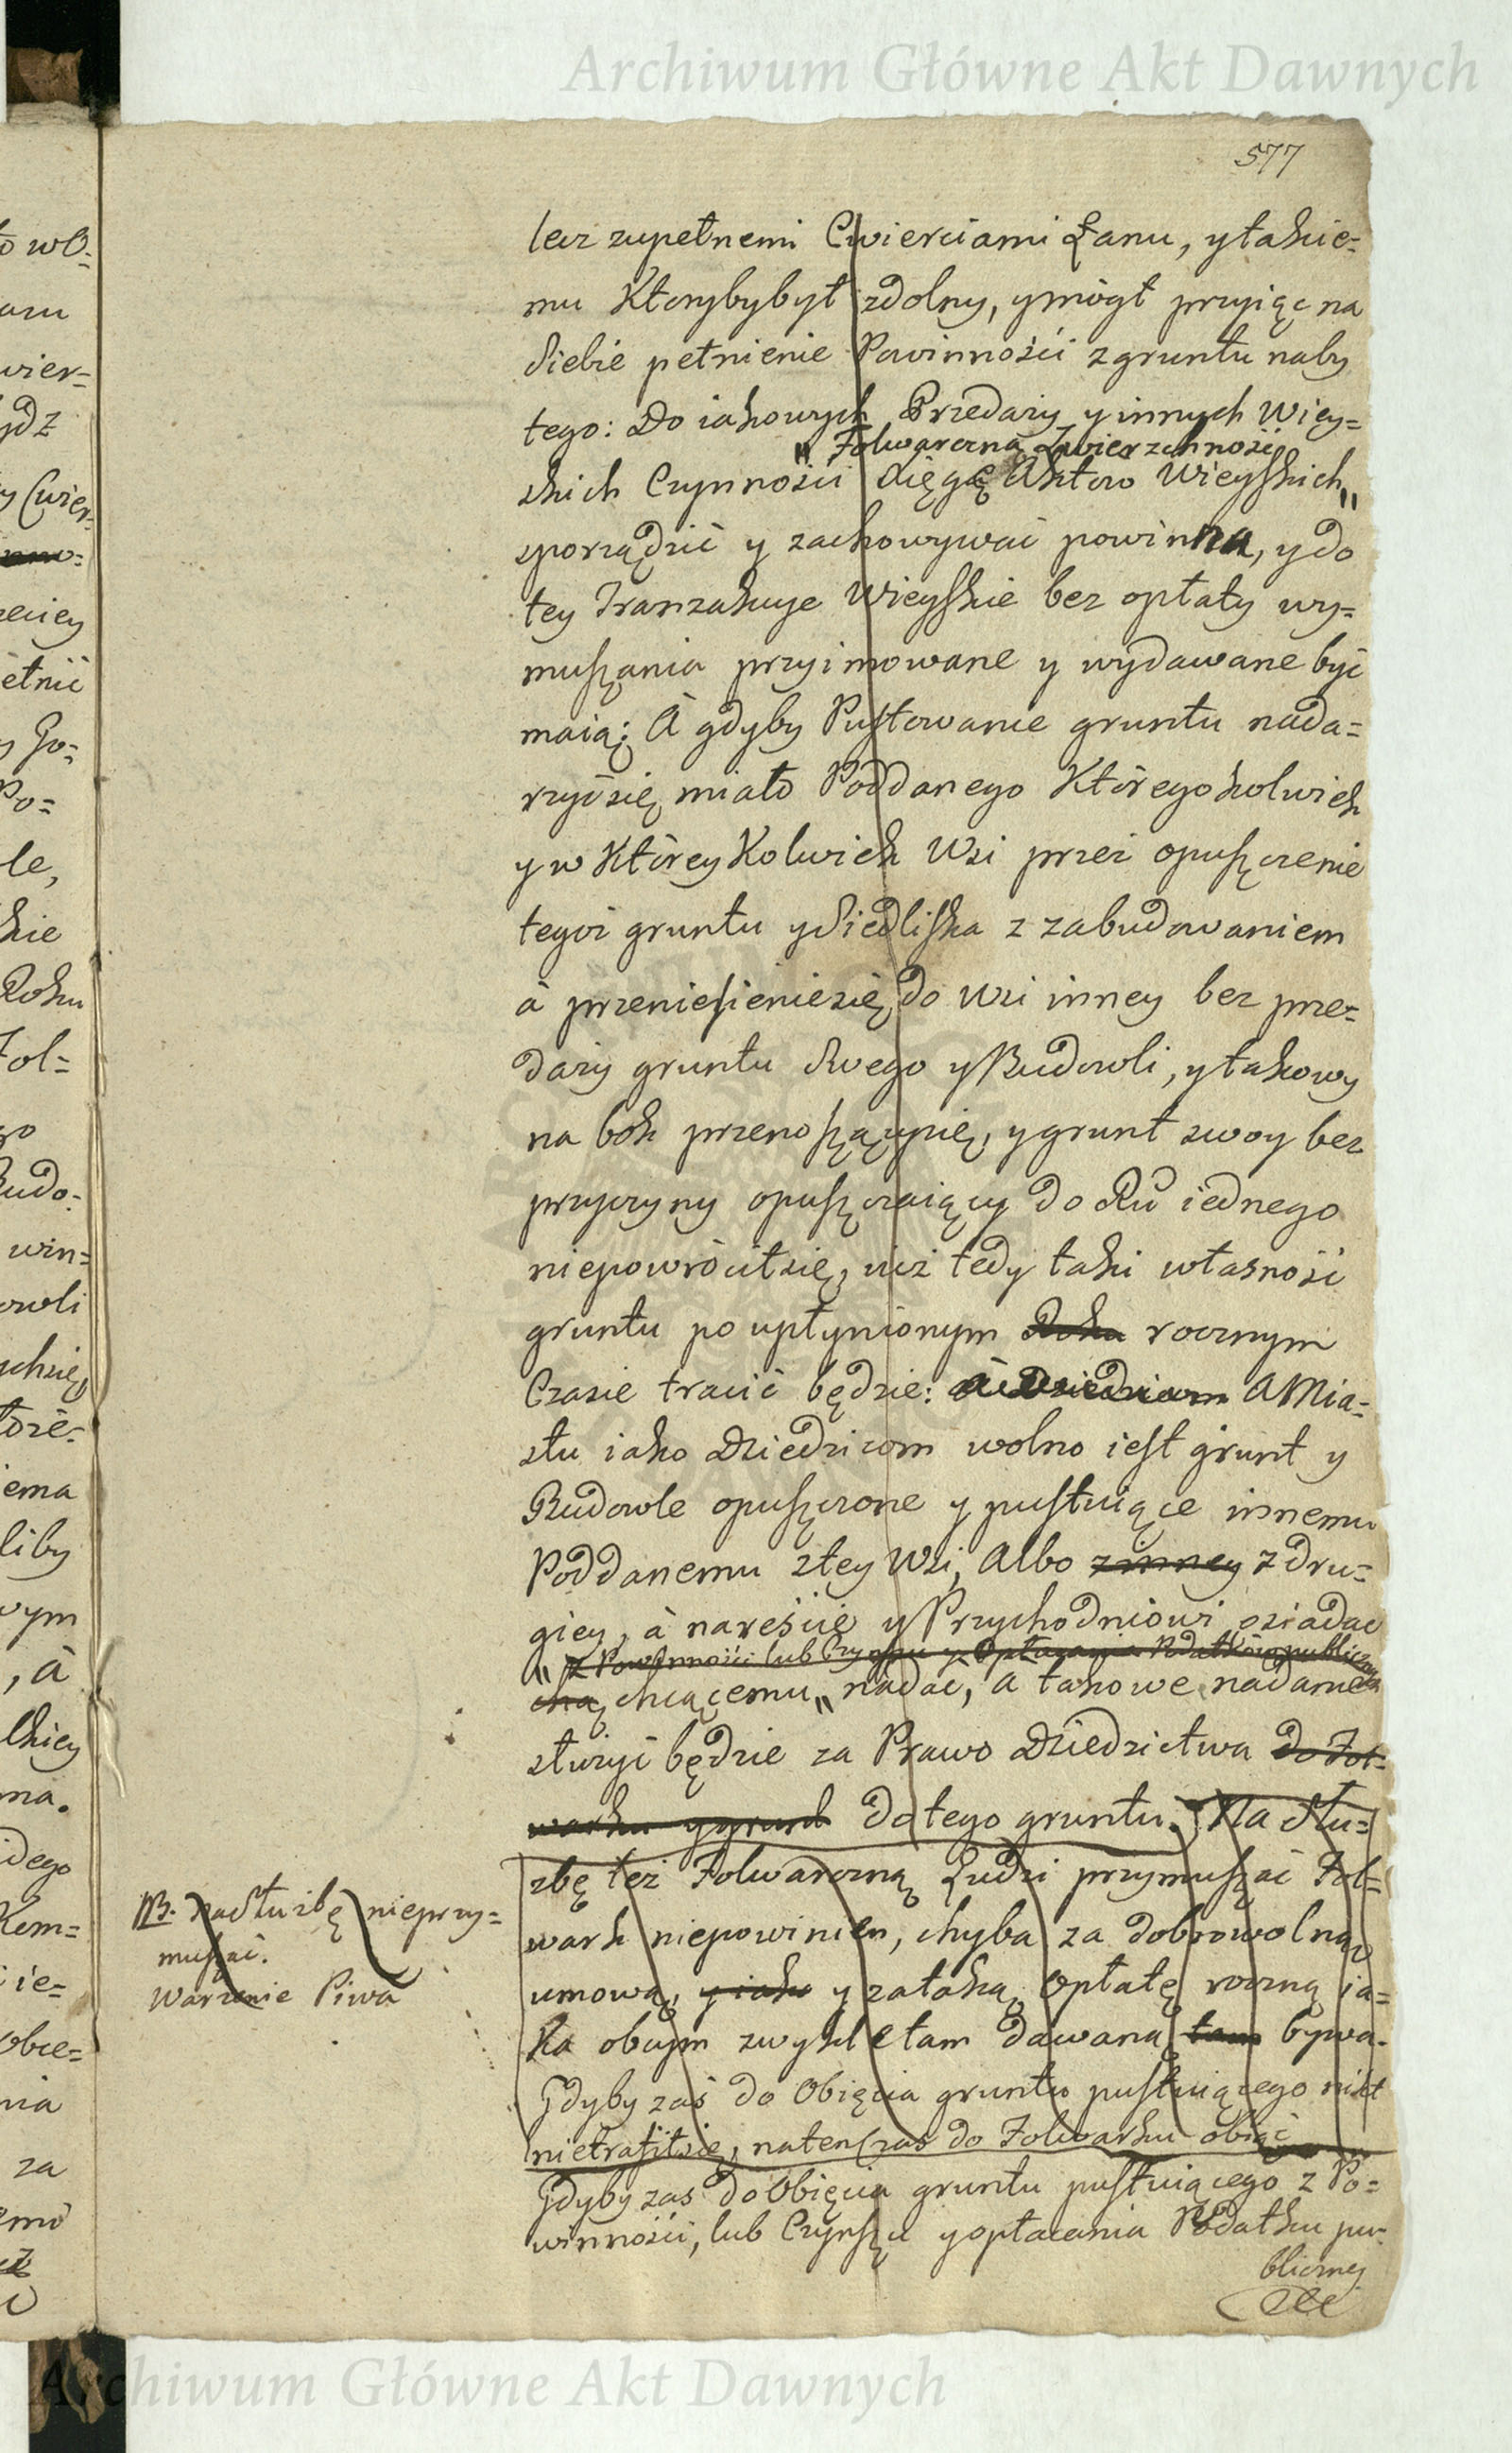 Archiwum Główne Akt Dawnych
577
lecz zupełnemi Cwierciami Łanu, y takie=
mu Ktorybybył zdolny, y mógł przyiąc na
Siebie pełnienie Powinności z gruntu naby
tego: Do iakowych Przedaży y innych Wiey=
" Folwarczna Zwierzchność
skich Czynności xięgę Aktow Wieyskich "
sporządzić y zachowywać powinna, y do
tey Tranzakcye Wieyskie bez opłaty wy=
muszania przyimowane y wydawane być
maią; A gdyby Pustowanie gruntu nada=
rzyć się miało Poddanego Któregokolwiek
y w Którey Kolwiek Wsi przez opuszczenie
tegoż gruntu y Siedliska z zabudowaniem
à przeniesienie się do Wsi inney bez prze=
daży gruntu Swego y Budowli, y takowy
na bok przenoszący się, y grunt swoy bez
przyczyny opuszczaiący do Ru iednego
niepowróciłsię, iuż tedy taki własność
gruntu po upłynionym Roku rocznym
Czasie tracić będzie: à Dziedzicom A Mia=
stu iako Dziedzicom wolno iest grunt y
Budowle opuszczone y pustuiące innemu
Poddanemu z tey Wsi, Albo z inney z dru=
giey, à nareście y Przychodniowi osiadać
" z Powinności lub Czynszu y Opłacania Podatków publicznych
chcą chcącemu " nadać, a takowe nadanie
służyć będzie za Prawo Dziedzictwa do Fol=
warku y grunt do tego gruntu. Na Słu=
żbę też Folwarczną Ludzi przymuszać Fol=
wark niepowinien, chyba za dobrowolną
umową, y iako y za taką Opłatę roczną ia=
ka obcym zwykle tam dawaną tam bywa.
Gdyby zaś do Obięcia gruntu pustuiącego nikt
nietrafiłsię, natenczas do Folwarku obiąć
Gdyby zas do Obięcia gruntu pustuiącego z Po=
winności, lub Czynszu y opłacania Podatku pu=
bliczney
NB. na Służbę nieprzy=
muszać.
Warzenie Piwa
Archiwum Główne Akt Dawnych